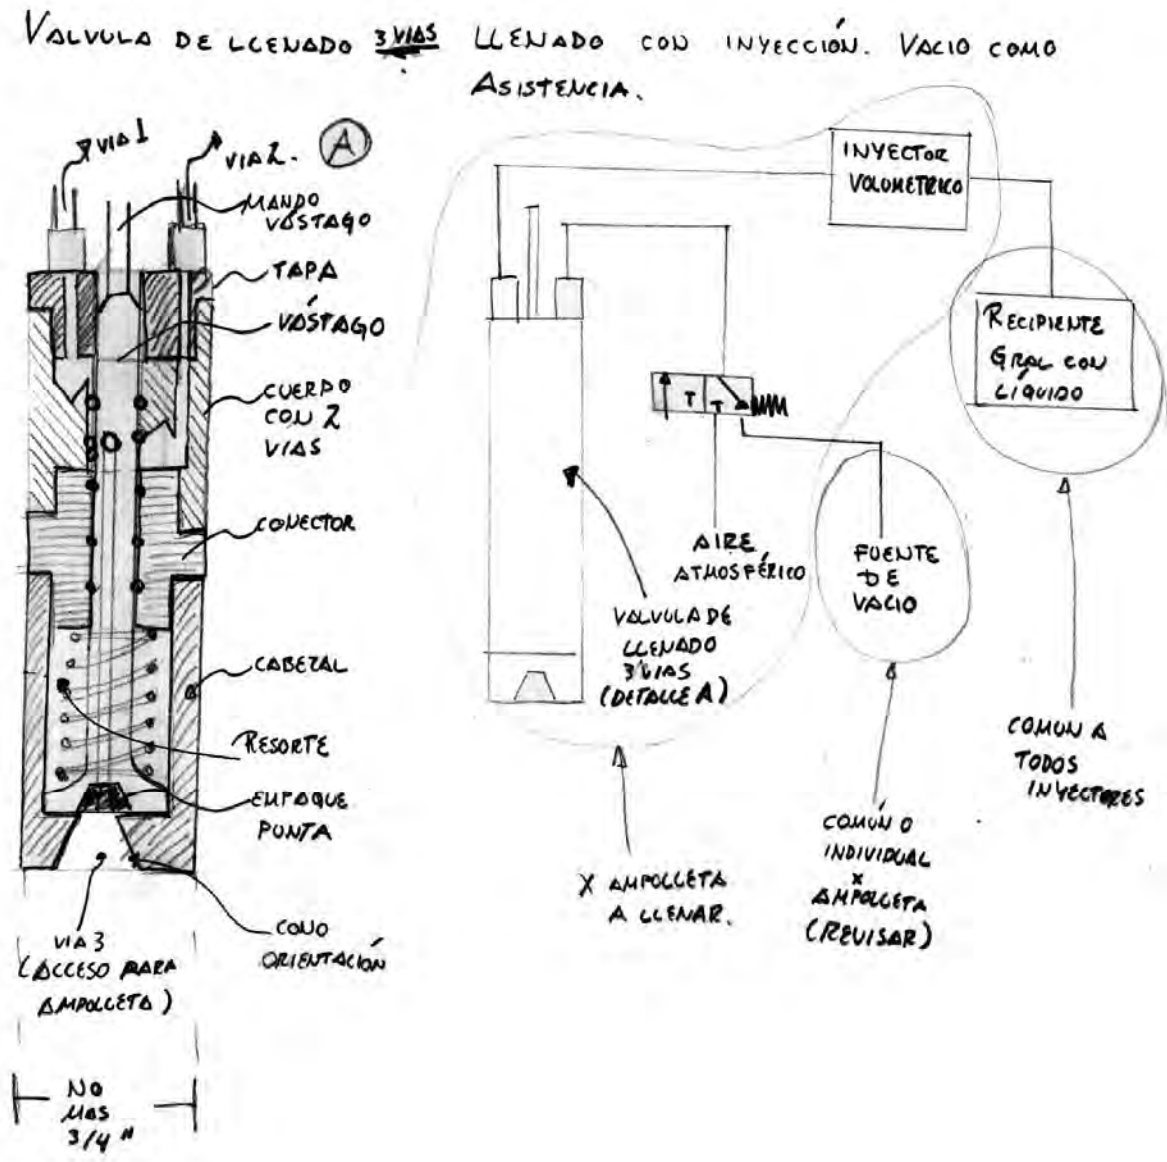 VALVULA DE LLENADO 3 VIAS LLENADO CON INYECCIÓN. VACIO COMO
ASISTENCIA.
VIA 1
VIA 2.
A
MANDO
VÁSTAGO
TAPA
VÁSTAGO
CUERPO
CON 2
VIAS
CONECTOR
CABEZAL
RESORTE
EMPAQUE
PUNTA
CONO
ORIENTACIÓN
VIA 3
(ACCESO PARA
AMPOLLETA)
NO
MAS
3/4"
INYECTOR
VOLUMETRICO
RECIPIENTE
GRAL CON
LÍQUIDO
T T
AIRE
ATMOSFÉRICO
FUENTE
DE
VACIO
VALVULA DE
LLENADO
3 VIAS
(DETALLE A)
X AMPOLLETA
A LLENAR.
COMÚN O
INDIVIDUAL
X
AMPOLLETA
(REVISAR)
COMUN A
TODOS
INYECTORES